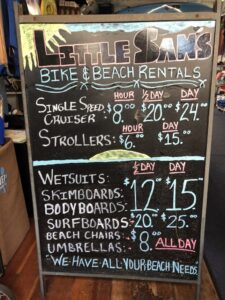 LITTLE SAM'S
BIKE & BEACH RENTALS
HOUR ½ DAY DAY
SINGLE SPEED CRUISER $8.00 $20.00 $24.00
HOUR DAY
STROLLERS: $6.00 $15.00
½ DAY DAY
WETSUITS:
SKIMBOARDS: $12.00 $15.00
BODYBOARDS:
SURFBOARDS: $20.00 $25.00
BEACH CHAIRS: $8.00 ALL DAY
UMBRELLAS:
"WE HAVE ALL YOUR BEACH NEEDS"